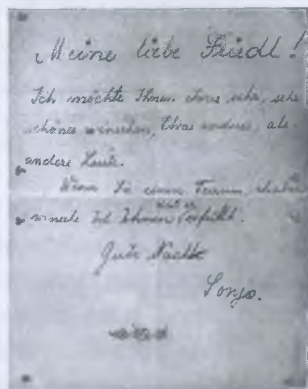 Meine liebe Friedl!
Ich möchte Ihnen etwas sehr, sehr
schönes wünschen, Etwas anderes, als
andere Leute.
Wenn Sie einen Traum, haben
wird er
Ihnen erfüllt.
Gute Nacht
Sonja.